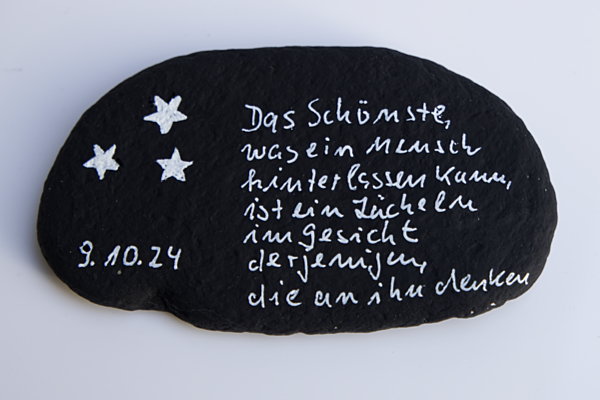 Das Schönste,
was ein Mensch
hinterlassen kann,
ist ein Lächeln
im Gesicht
derjenigen,
die an ihn denken
9.10.24